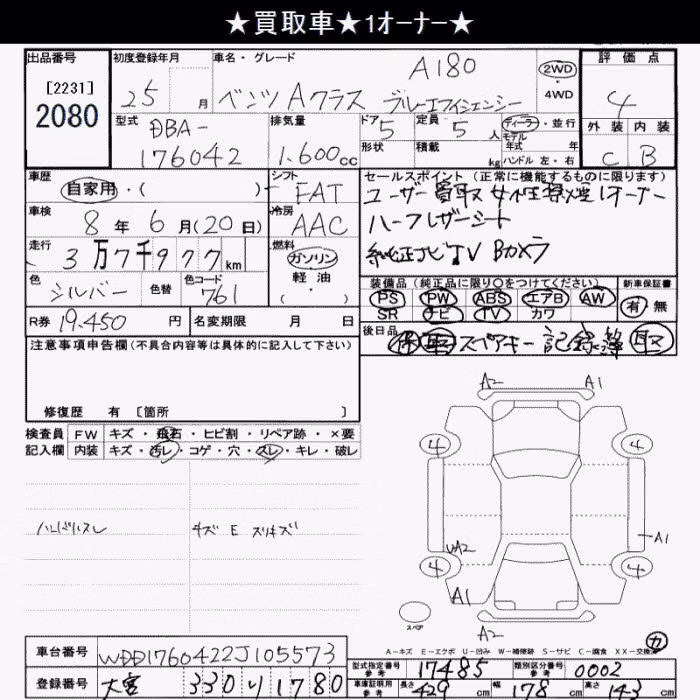 ★買取車★1オーナー★
出品番号
[2231]
2080
初度登録年月
25 月
車名・グレード
A180
ベンツ Aクラス ブルーエフィシェンシー
2WD
・
4WD
評価点
4
外装 内装
C B
型式
DBA-
176042
排気量
1.600cc
ドア 5
形状
定員 5 人
積載 kg
ディーラー・並行
モデル
年式 年
ハンドル 左・右
車歴
自家用・( )
シフト
FAT
車検
8年 6月(20日)
冷房
AAC
走行
3万7千977km
燃料
ガソリン
・
軽油
( )
色
シルバー
色替
色コード
761
R券 19.450 円
名変期限 月 日
セールスポイント (正常に機能するものに限ります)
ユーザー買取 女性禁煙 1オーナー
ハーフレザーシート
純正ナビTV Bカメラ
装備品 (純正品に限り○をつけてください)
PS PW ABS エアB AW
SR ナビ TV カワ
新車保証書
有 無
後日品
保 取 スペアキー 記録簿 取
注意事項申告欄(不具合内容等は具体的に記入して下さい)
修復歴 有 [箇所 ]
検査員
記入欄
FW キズ・飛石・ヒビ割・リペア跡・×要
内装 キズ・汚レ・コゲ・穴・スレ・キレ・破レ
ハンドルスレ
キズ E スリキズ
A2 A1
4 4
WA2 A1
4 4
A1
A2
スペア
A-キズ E-エクボ U-凹み W-補修跡 S-サビ C-腐食 XX-交換済
カ
車台番号 WDD1760422J105573
登録番号 大宮 330 り 1780
型式指定番号
参考
17485
類別区分番号
参考
0002
車庫証明用
参考
長さ 429 cm 幅 178 cm 高さ 143 cm